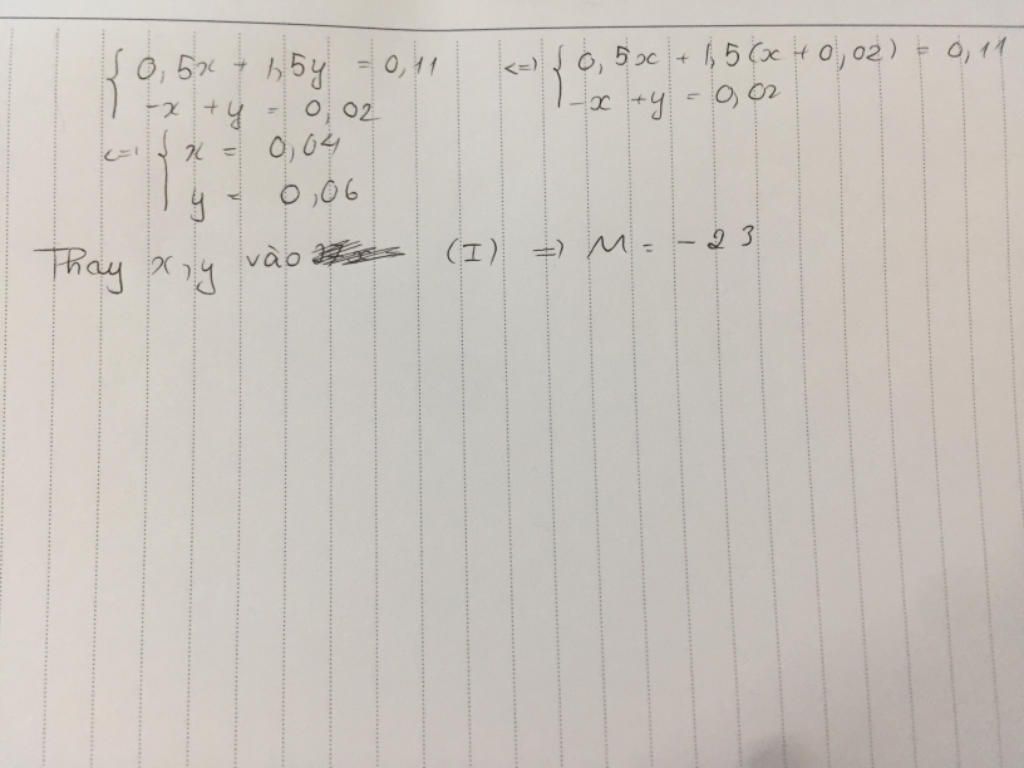 { 0,5x + 1,5y = 0,11 <=> { 0,5x + 1,5(x + 0,02) = 0,11
-x + y = 0,02 -x + y = 0,02
<=> { x = 0,04
y = 0,06
Thay x, y vào (I) => M = -23